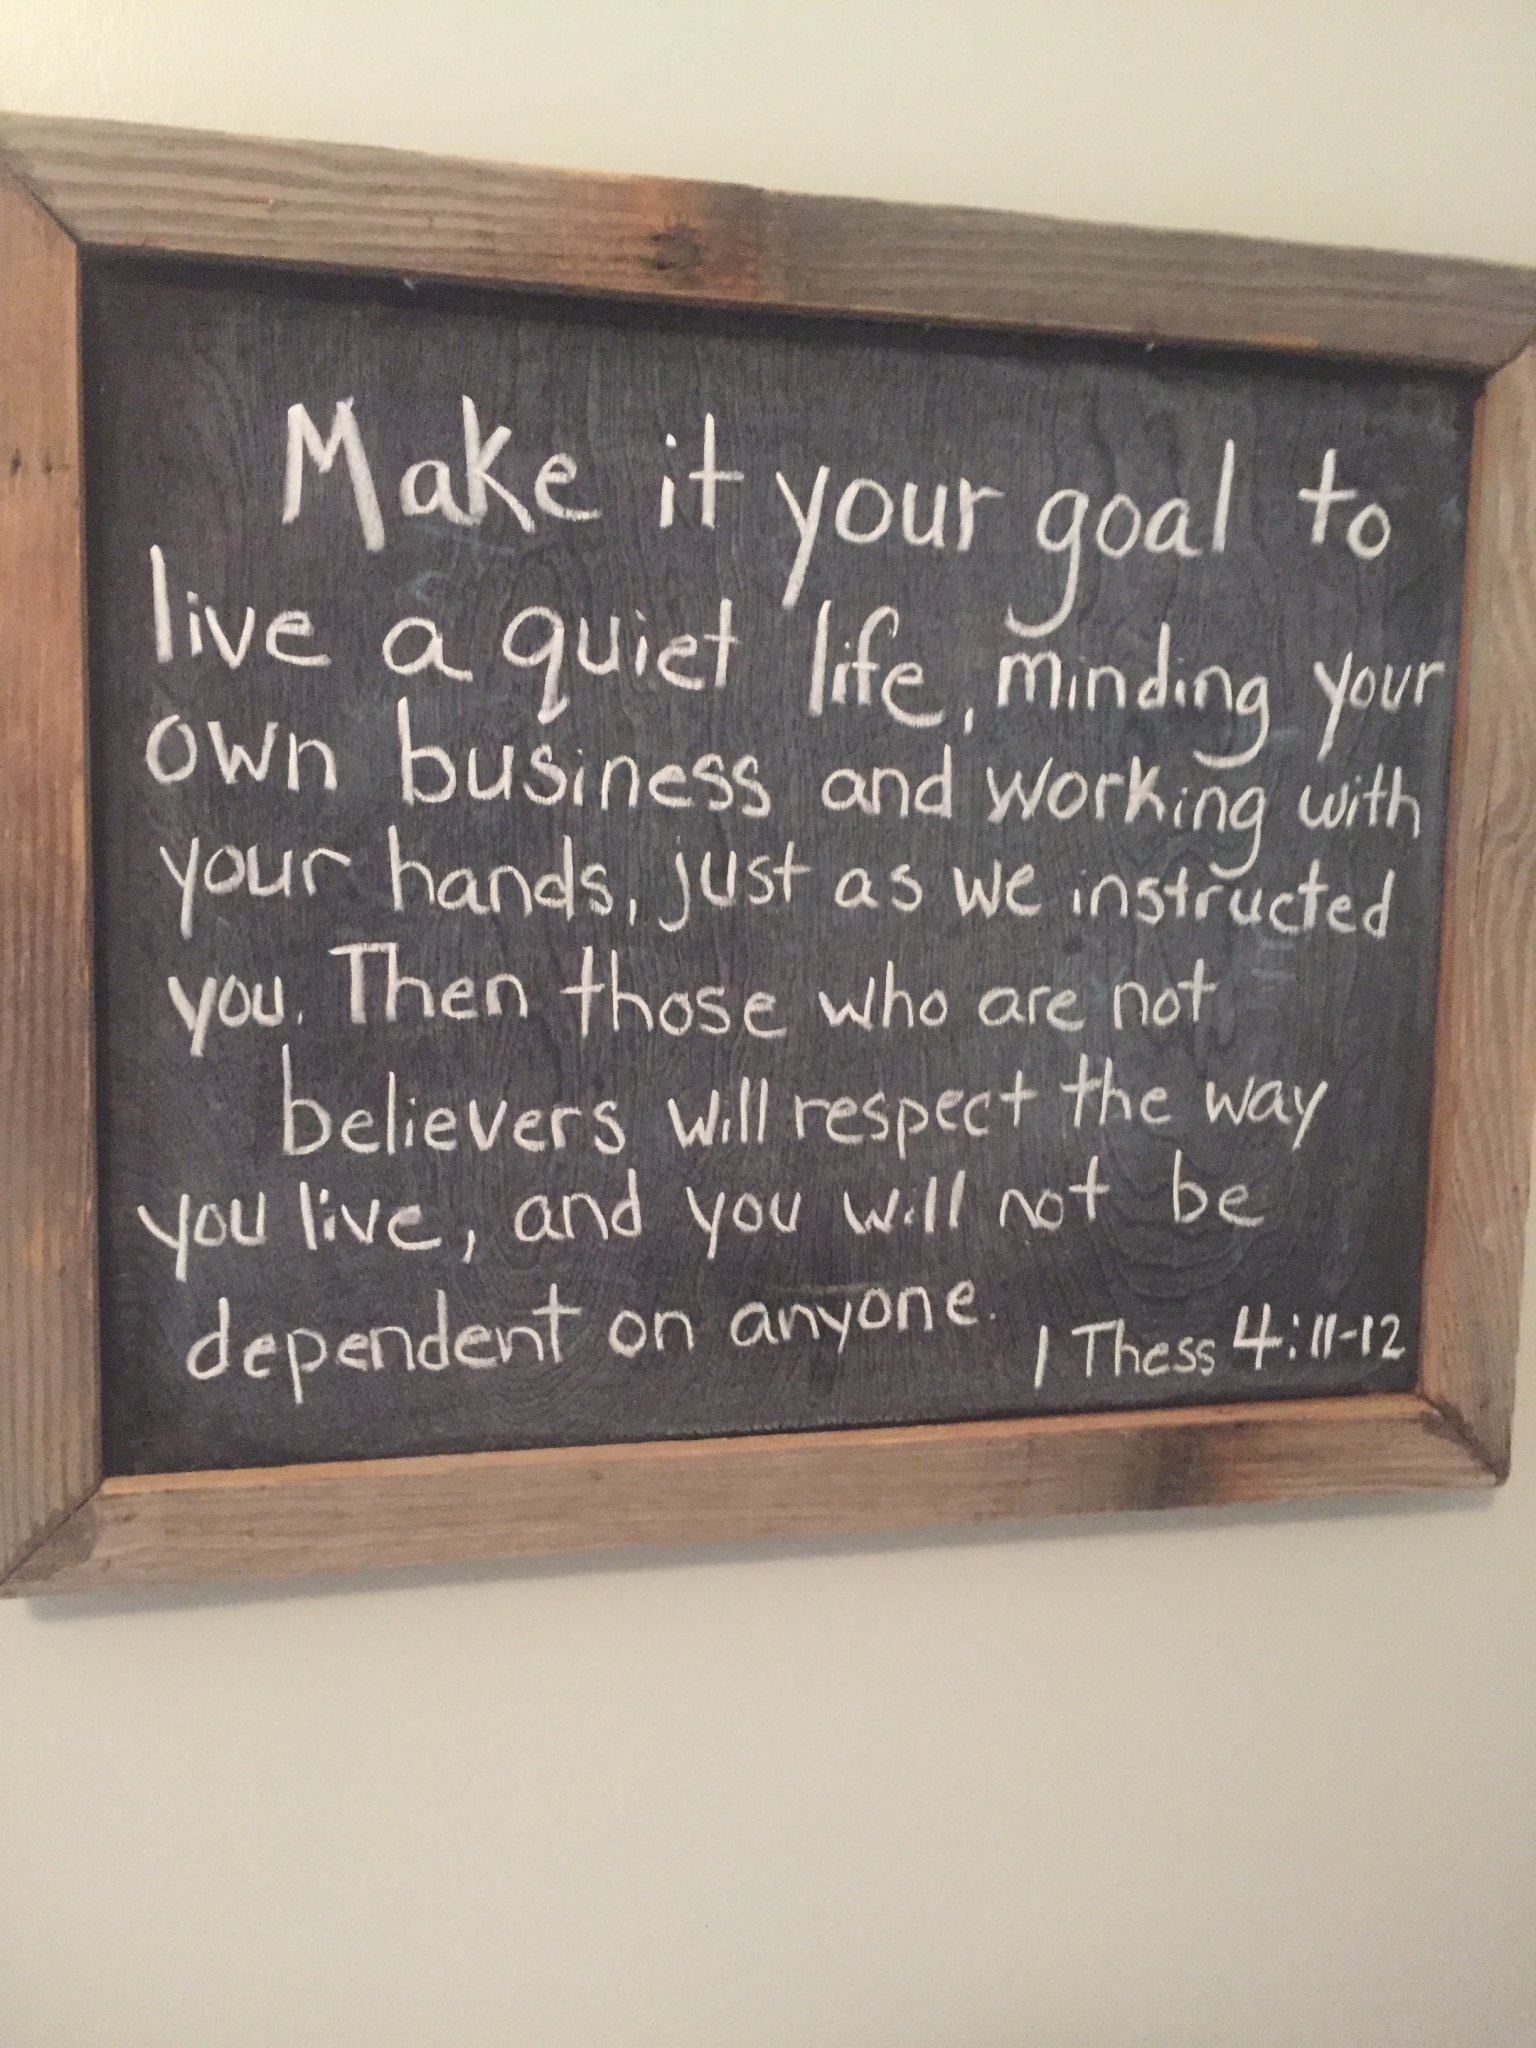 Make it your goal to
live a quiet life, minding your
own business and working with
your hands, just as we instructed
you. Then those who are not
believers will respect the way
you live, and you will not be
dependent on anyone.
1 Thess 4:11-12